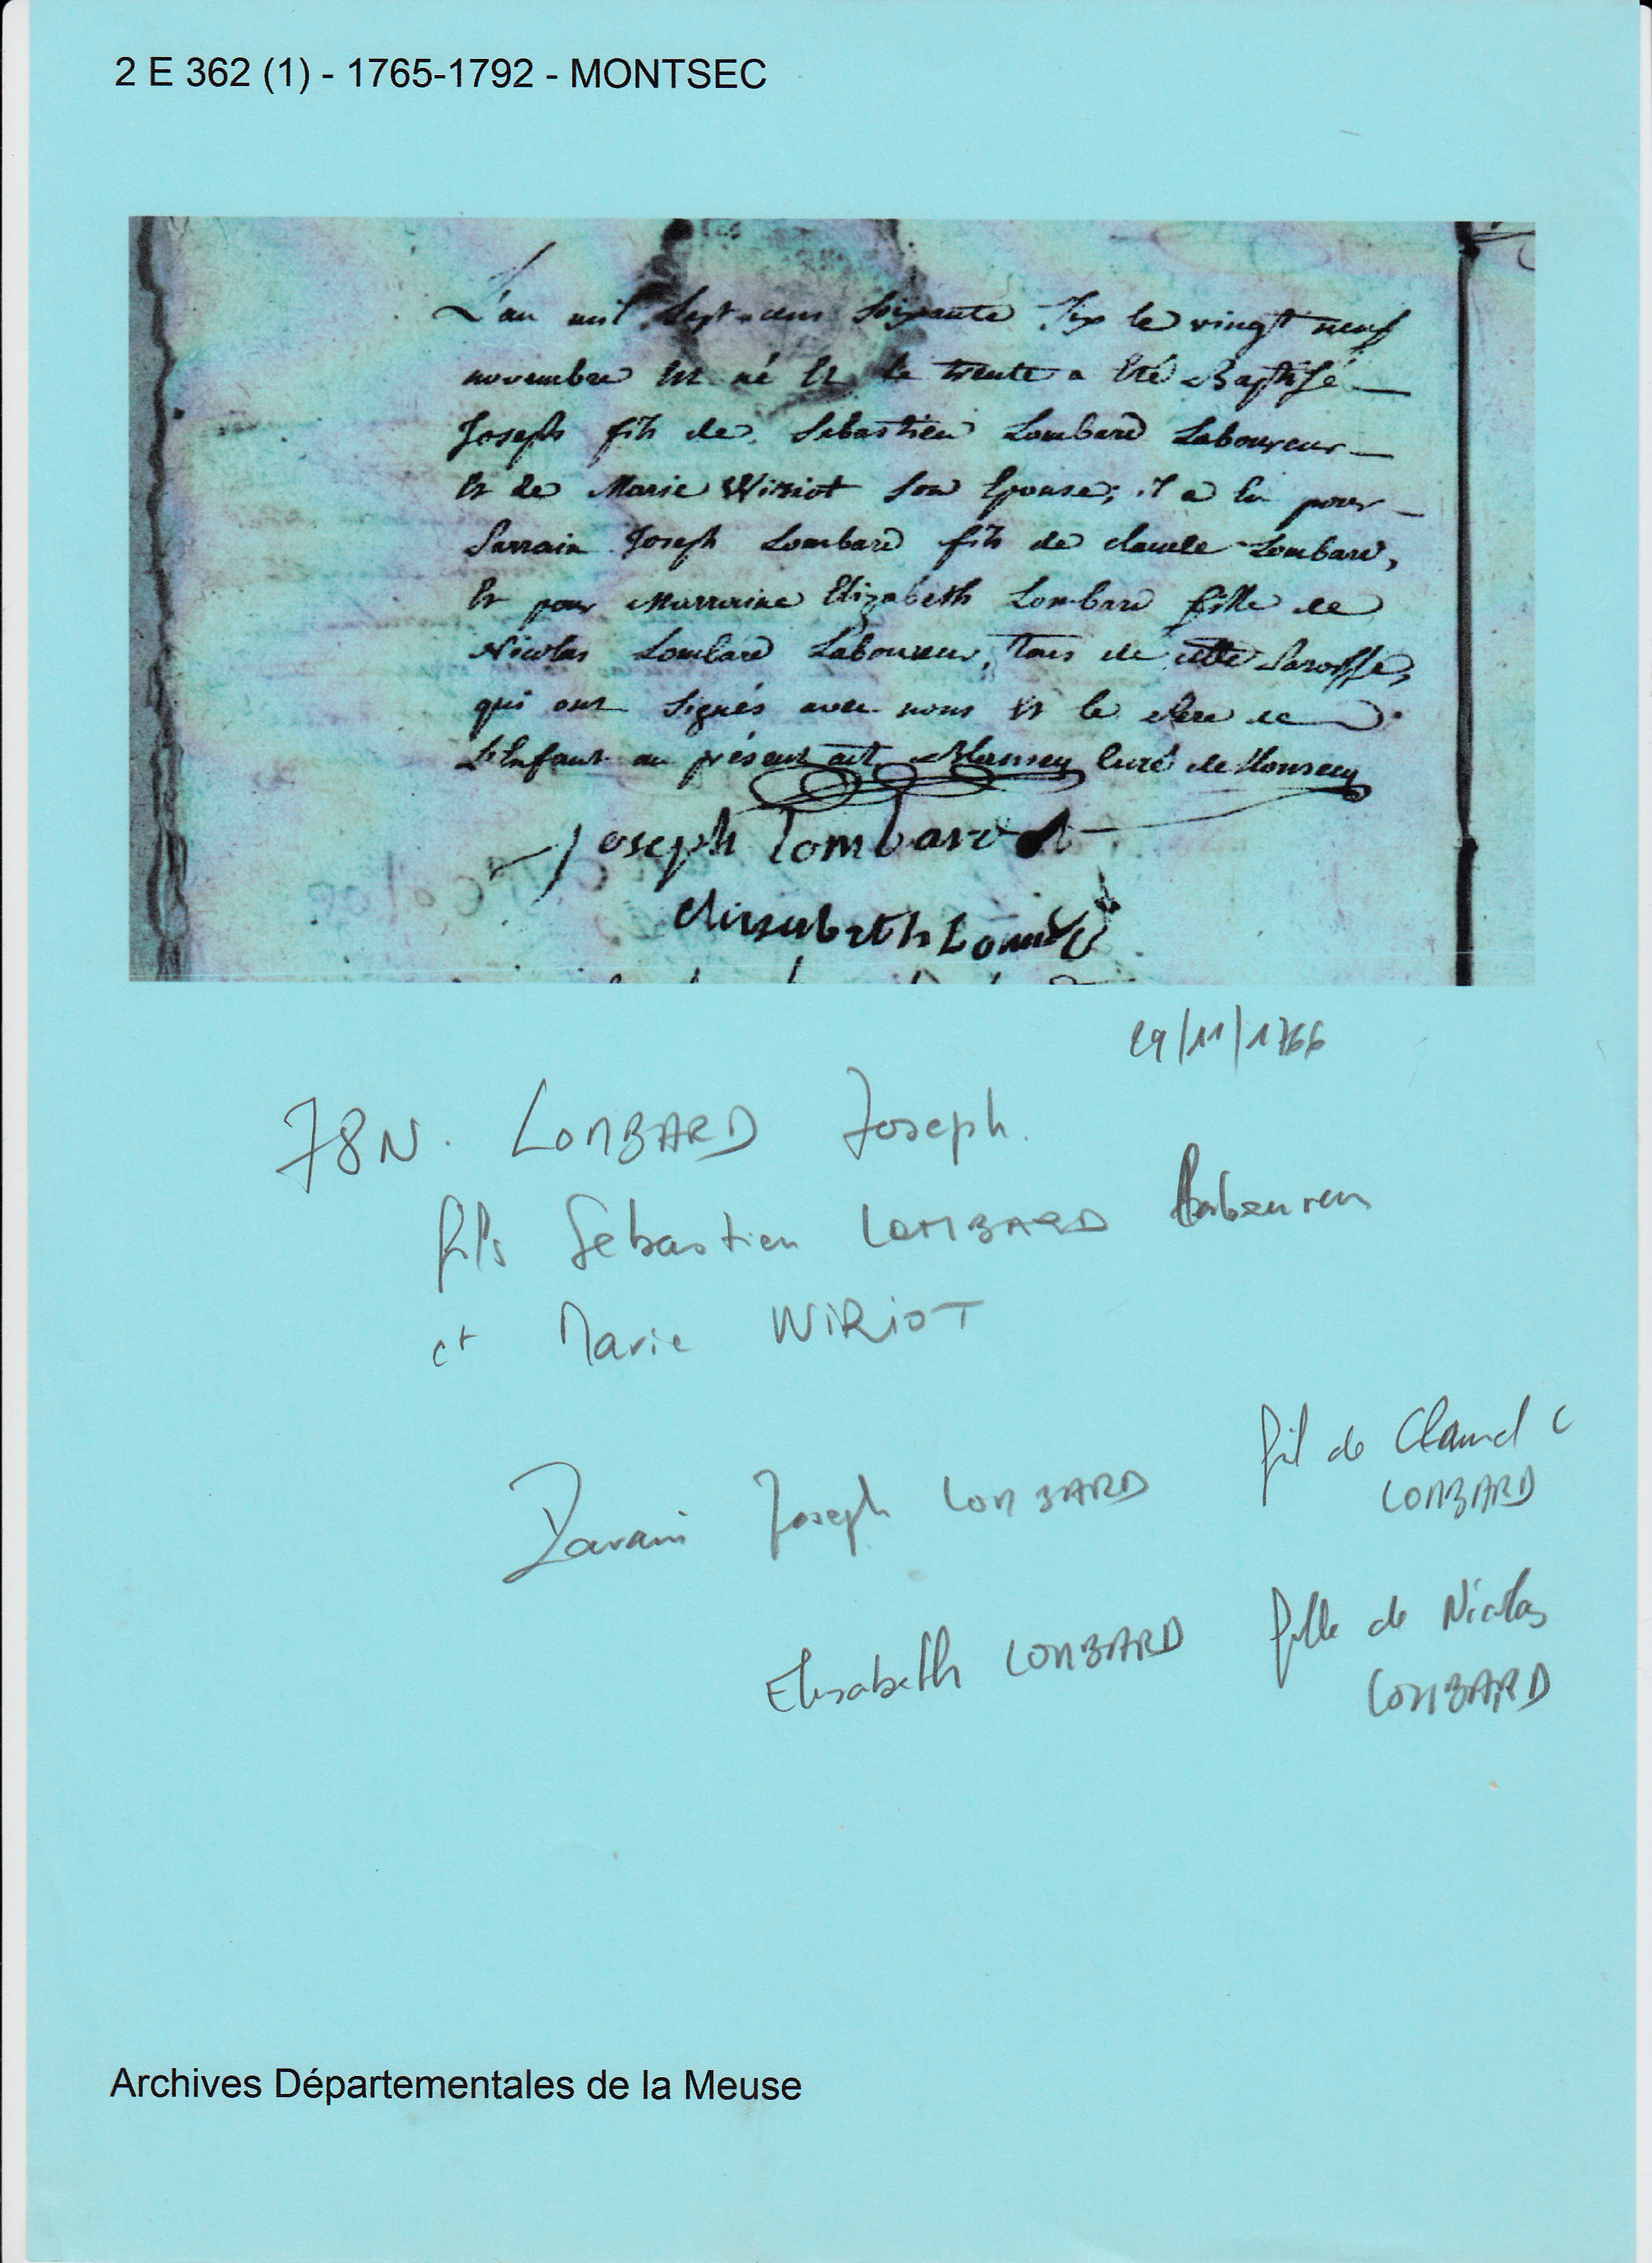 2 E 362 (1) - 1765-1792 - MONTSEC
L'an mil Sept cens Soixante Six le vingt neuf
novembre Est né Et le trente a Eté Baptisé
Joseph fils de Sebastien Lombard Laboureur
Et de Marie Wiriot Son Epouse; il a Eu pour
Parrain Joseph Lombard fils de claude Lombard,
Et pour Marraine Elizabeth Lombard fille de
Nicolas Lombard Laboureur, tous de cette Paroisse,
qui ont Signés avec nous Et le Pere de
L'Enfant au présent act curé de Monsecq
Joseph lombard
Elizabeth Lombard
29/11/1766
78N. LOMBARD Joseph.
fils Sébastien LOMBARD laboureur
et Marie WIRIOT
Parain Joseph LOMBARD fil de Claude
LOMBARD
Elisabeth LOMBARD fille de Nicolas
LOMBARD
Archives Départementales de la Meuse